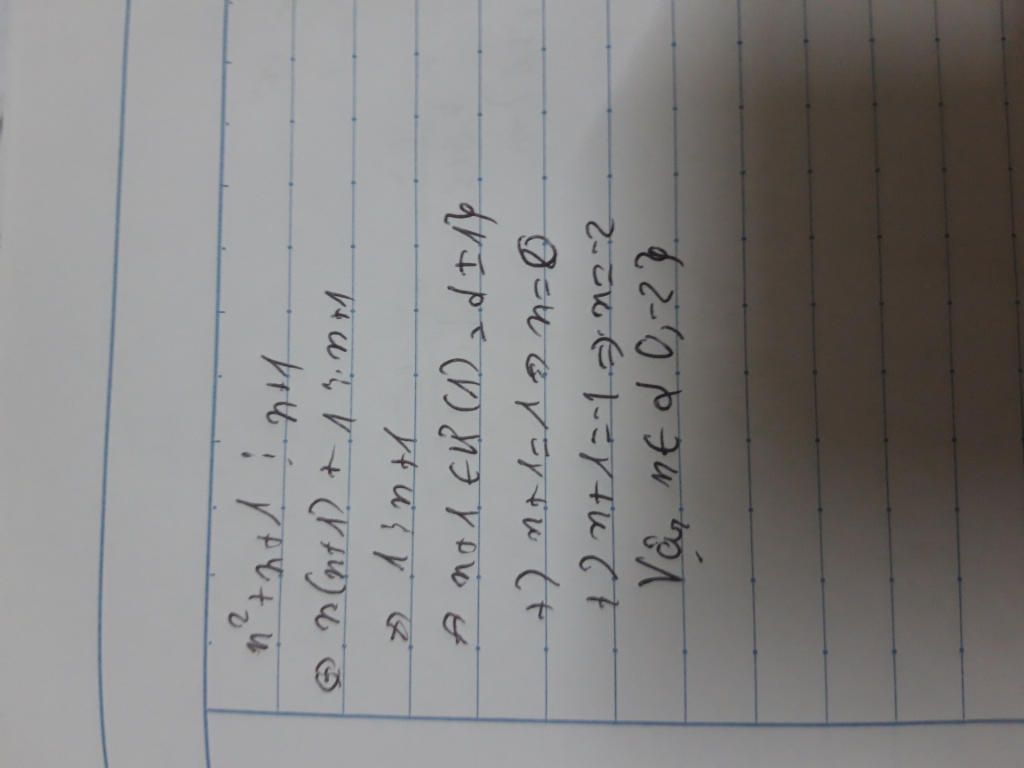 n² + n + 1 ⋮ n + 1
⇔ n(n+1) + 1 ⋮ n + 1
⇒ 1 ⋮ n + 1
⇒ n + 1 ∈ Ư(1) = {±1}
+) n + 1 = 1 ⇒ n = 0
+) n + 1 = -1 ⇒ n = -2
Vậy n ∈ {0, -2}